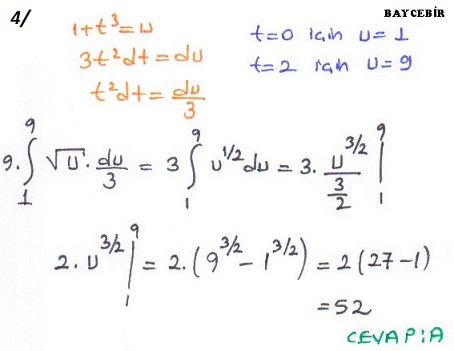 4/
BAYCEBİR
1+t³=u
3t²dt=du
t²dt=du/3
t=0 için u=1
t=2 için u=9
9.∫₁⁹ √u . du/3 = 3 ∫₁⁹ u^1/2 du = 3. u^3/2 / 3/2 |₁⁹
2.u^3/2 |₁⁹ = 2.(9^3/2 - 1^3/2) = 2(27-1)
=52
CEVAP:A